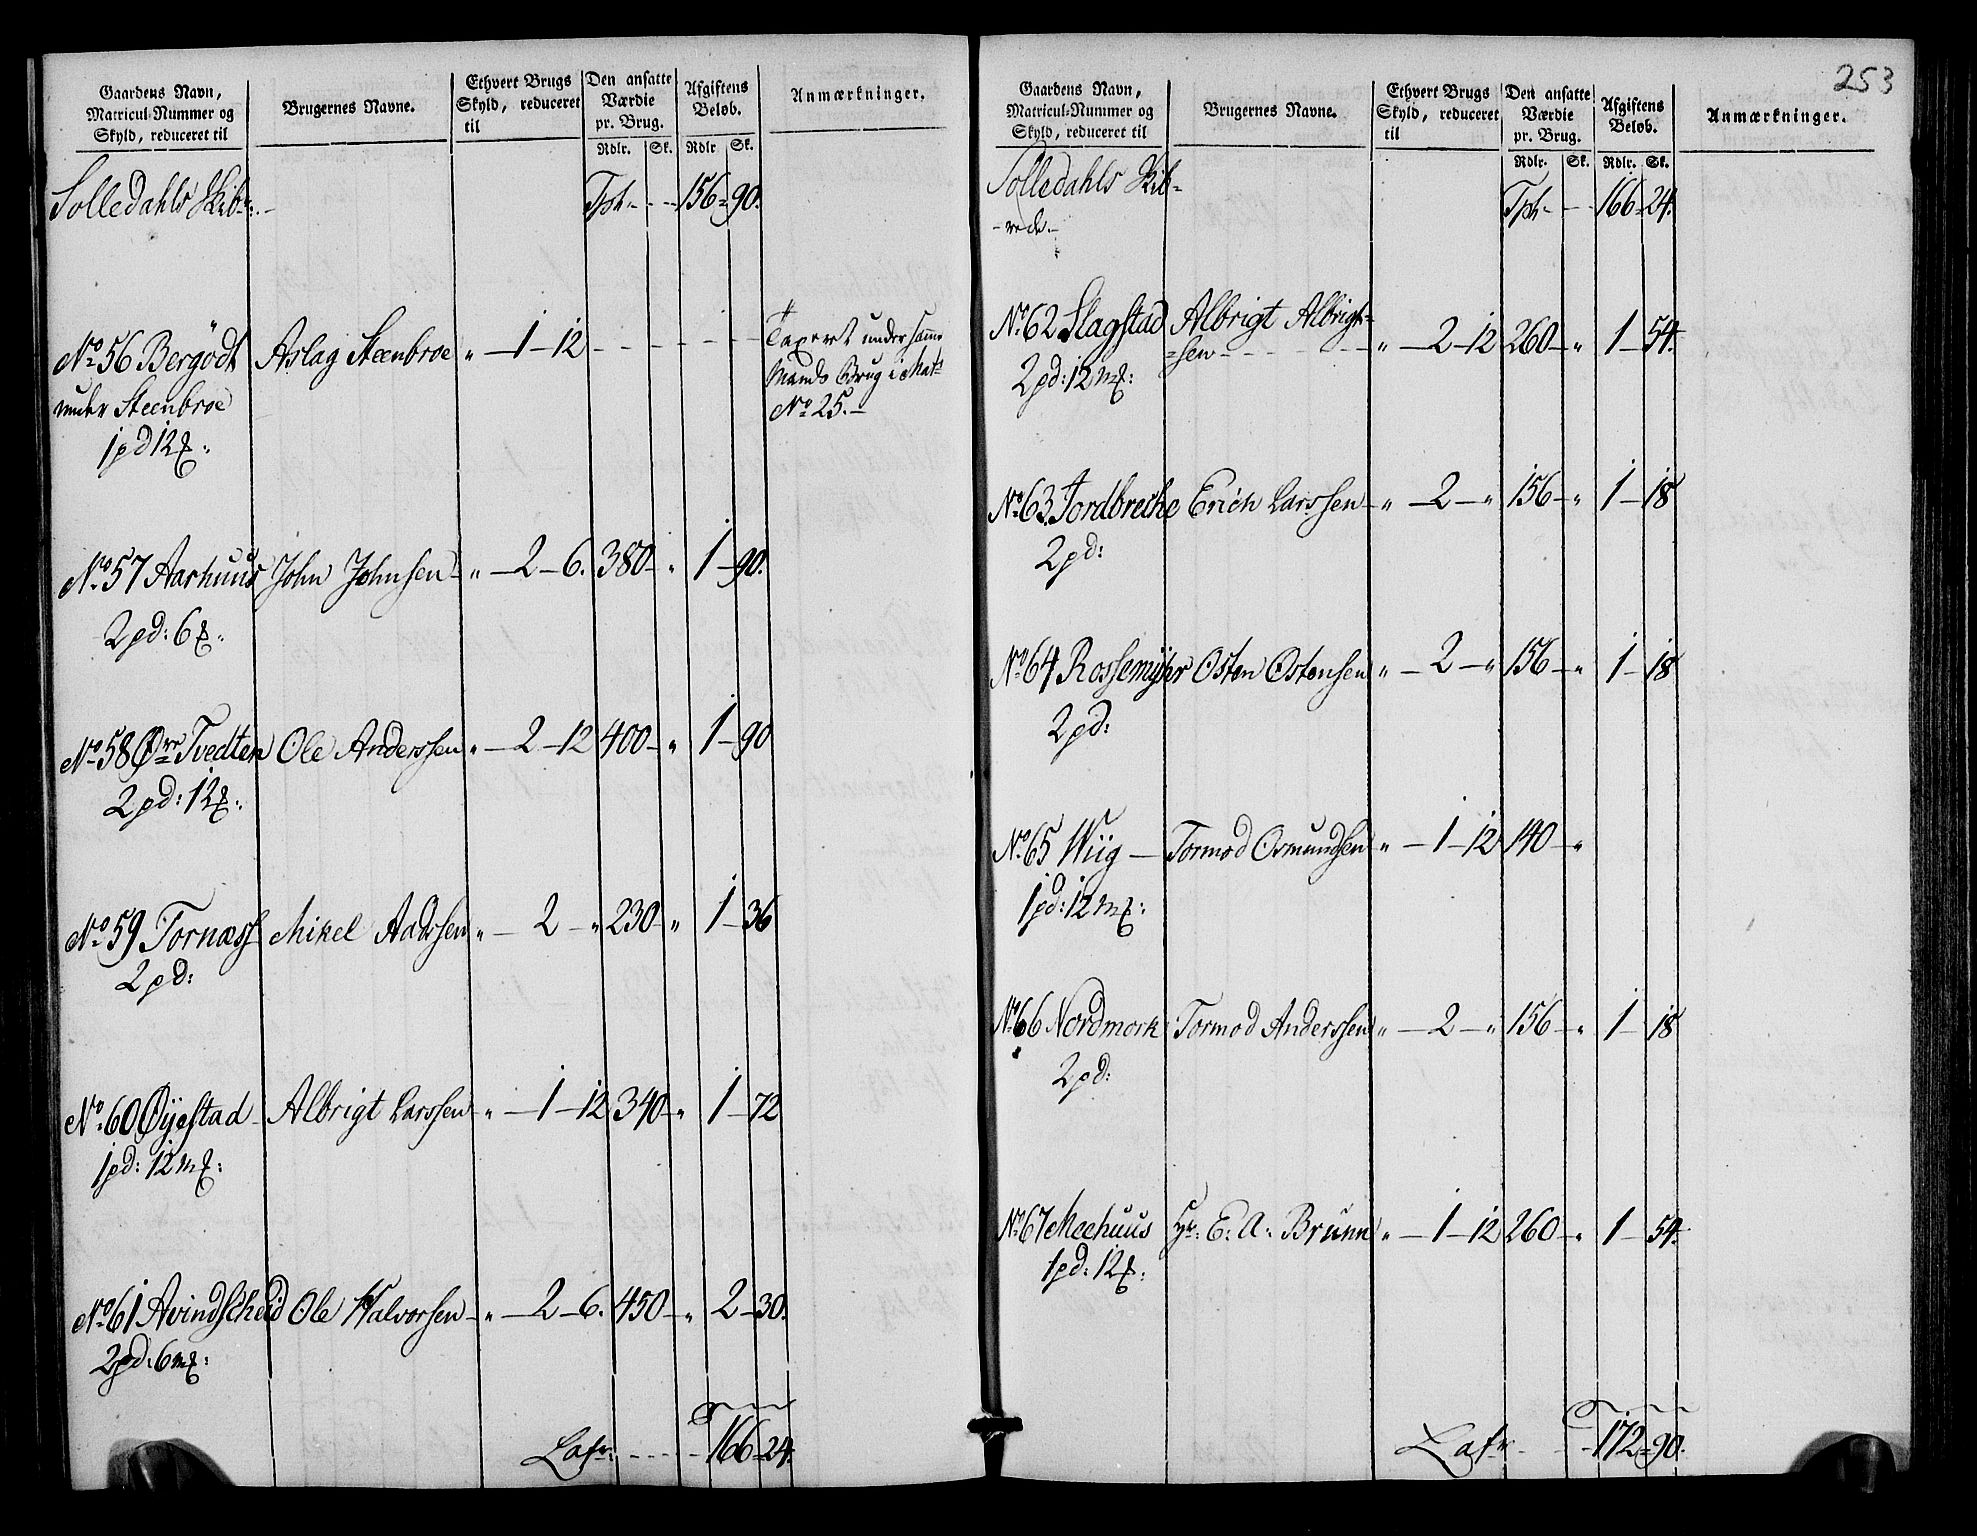 Gaardens Navn,
Matricul-Nummer og
Skyld, reduceret til
Brugernes Navne.
Ethvert Brugs
Skyld, reduceret
til
Den ansatte
Værdie
pr. Brug.
Rdlr. Sk.
Afgiftens
Beløb.
Rdlr Sk.
Anmærkninger.
Solledahls Skib:
Tpt. 156 = 90.
No 56 Bergodt Aslag Steenbroe " — 1 — 12
under Steenbroe
1 pd 12
Taxeret under samme
Mands Brug i Mat:
No 25. —
No 57 Aarhuus John Johnsen " — 2 — 6. 380 — " 1 — 90.
2 pd: 6
No 58 Øre Tvedten Ole Anderssen " — 2 — 12 400 — " 1 — 90
2 pd: 12
No 59 Tornæss Mikel Aadssen " — 2 — " 230 — " 1 — 36
2 pd:
No 60 Øyestad Albrigt Larssen " — 1 — 12 340 — " 1 — 72
1 pd: 12 m
No 61 Avindscheid Ole Halvorsen " — 2 — 6. 450 — " 2 — 30.
2 pd: 6 m
Lats: 166 = 24.
253
Gaardens Navn,
Matricul-Nummer og
Skyld, reduceret til
Brugernes Navne.
Ethvert Brugs
Skyld, reduceret
til
Den ansatte
Værdie
pr. Brug.
Rdlr. Sk.
Afgiftens
Beløb.
Rdlr. Sk.
Anmærkninger.
Solledahls Skib-
-rede.
Tpt. 166 = 24.
No 62 Slagstad Albrigt Albrigt=
=sen " — 2 — 12 260 — " 1 — 54.
2 pd: 12 m
No 63 Jordbrecke Erich Larssen " — 2 — " 156 — " 1 — 18
2 pd:
No 64 Rossemyhr Osten Ostensen " — 2 — " 156 — " 1 — 18
2 pd:
No 65 Wiig — Tormod Osmundsen " — 1 — 12 140 — "
1 pd: 12 m
No 66 Nordmork Tormod Anderssen " — 2 — " 156 — " 1 — 18
2 pd:
No 67 Meehuus Hr. E. A. Brunn " — 1 — 12 260 — " 1 — 54.
1 pd: 12
Lats 172 = 90.